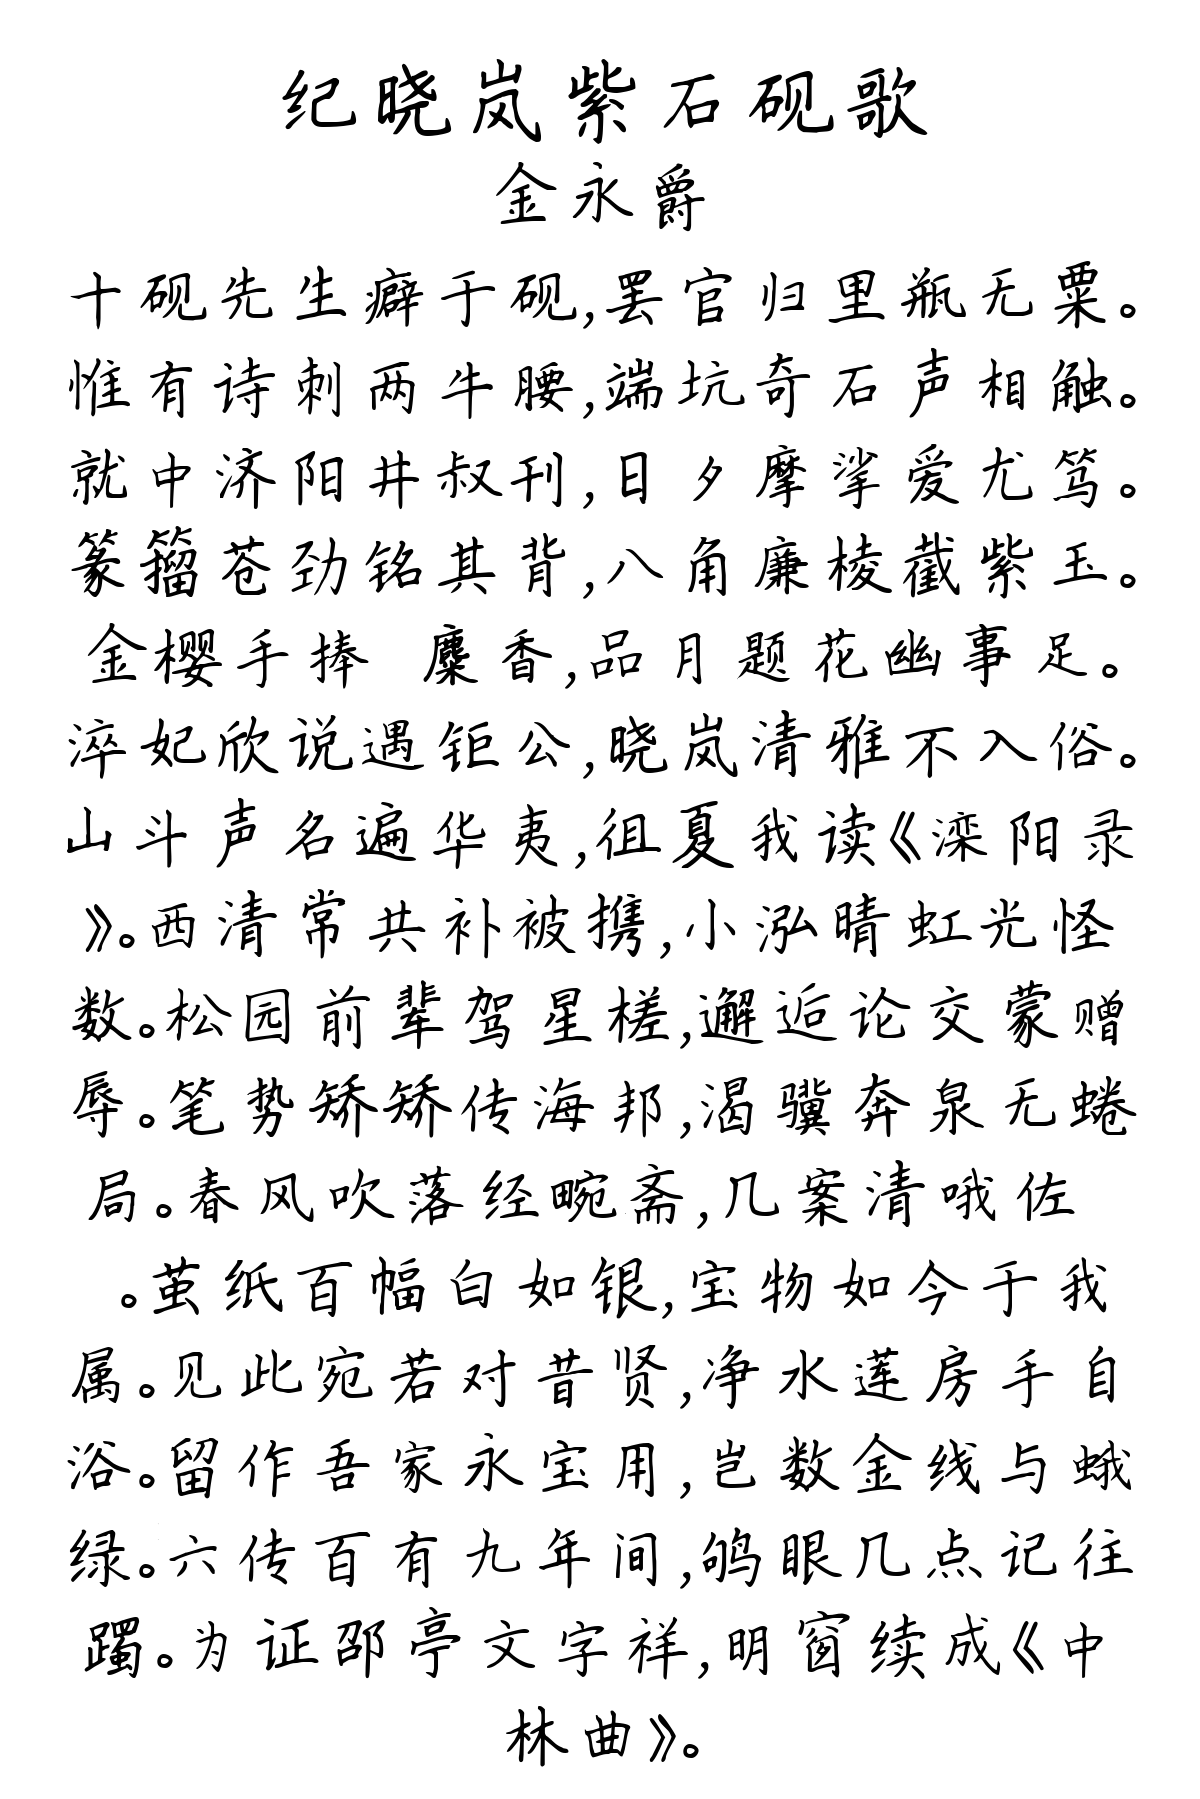 纪晓岚紫石砚歌
金永爵
十砚先生癖于砚,罢官归里瓶无粟。
惟有诗刺两牛腰,端坑奇石声相触。
就中济阳井叔刊,日夕摩挲爱尤笃。
篆籀苍劲铭其背,八角廉棱截紫玉。
金樱手捧 麋香,品月题花幽事足。
淬妃欣说遇钜公,晓岚清雅不入俗。
山斗声名遍华夷,徂夏我读《滦阳录
》。西清常共补被携,小泓晴虹光怪
数。松园前辈驾星槎,邂逅论交蒙赠
辱。笔势矫矫传海邦,渴骥奔泉无蜷
局。春风吹落经畹斋,几案清哦佐
。茧纸百幅白如银,宝物如今于我
属。见此宛若对昔贤,净水莲房手自
浴。留作吾家永宝用,岂数金线与蛾
绿。六传百有九年间,鸲眼几点记往
躅。为证邵亭文字祥,明窗续成《中
林曲》。